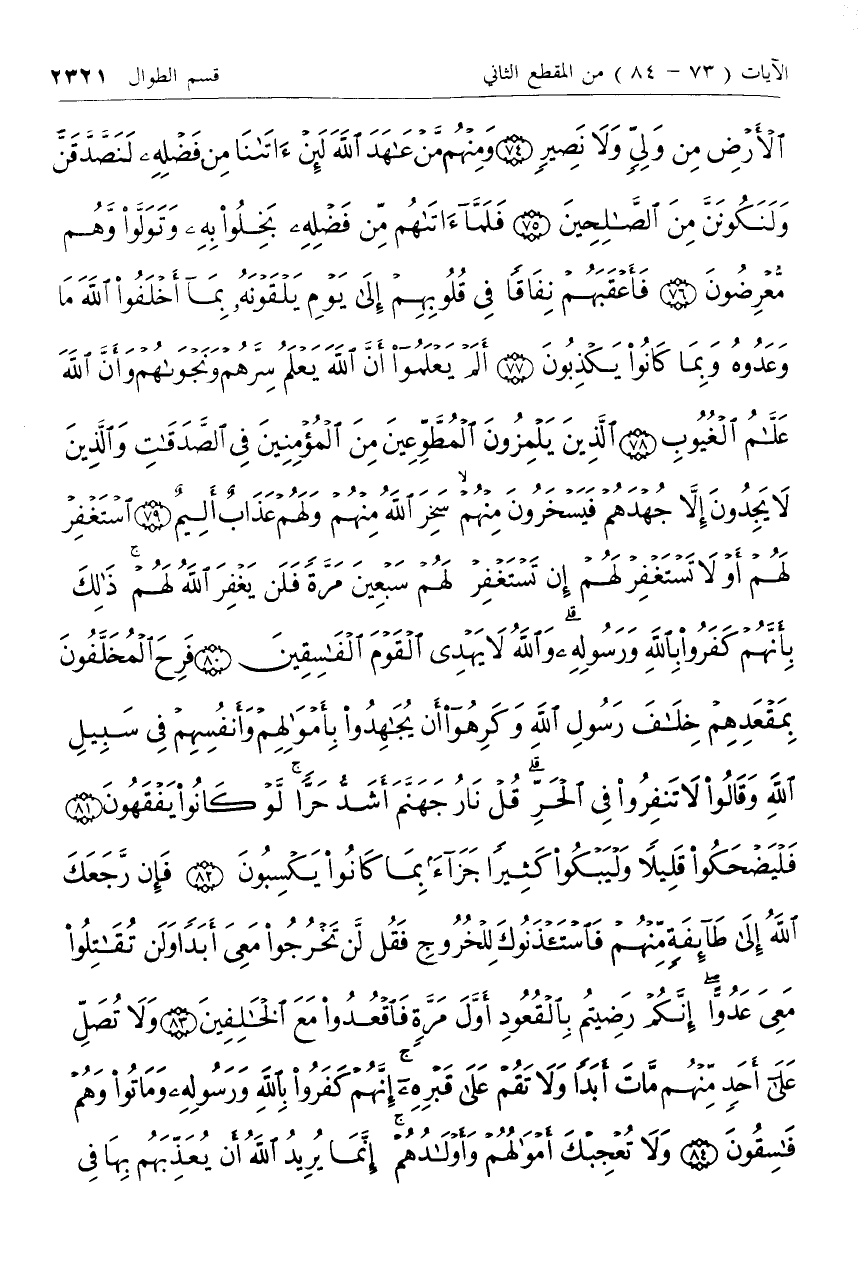 الآيات ( ٧٣ - ٨٤ ) من المقطع الثاني قسم الطوال ٢٣٢١
ٱلْأَرْضِ مِن وَلِيٍّ وَلَا نَصِيرٍ ﴿٧٤﴾ وَمِنْهُم مَّنْ عَٰهَدَ ٱللَّهَ لَئِنْ ءَاتَىٰنَا مِن فَضْلِهِۦ لَنَصَّدَّقَنَّ
وَلَنَكُونَنَّ مِنَ ٱلصَّٰلِحِينَ ﴿٧٥﴾ فَلَمَّآ ءَاتَىٰهُم مِّن فَضْلِهِۦ بَخِلُوا۟ بِهِۦ وَتَوَلَّوا۟ وَّهُم
مُّعْرِضُونَ ﴿٧٦﴾ فَأَعْقَبَهُمْ نِفَاقًا فِى قُلُوبِهِمْ إِلَىٰ يَوْمِ يَلْقَوْنَهُۥ بِمَآ أَخْلَفُوا۟ ٱللَّهَ مَا
وَعَدُوهُ وَبِمَا كَانُوا۟ يَكْذِبُونَ ﴿٧٧﴾ أَلَمْ يَعْلَمُوٓا۟ أَنَّ ٱللَّهَ يَعْلَمُ سِرَّهُمْ وَنَجْوَىٰهُمْ وَأَنَّ ٱللَّهَ
عَلَّٰمُ ٱلْغُيُوبِ ﴿٧٨﴾ ٱلَّذِينَ يَلْمِزُونَ ٱلْمُطَّوِّعِينَ مِنَ ٱلْمُؤْمِنِينَ فِى ٱلصَّدَقَٰتِ وَٱلَّذِينَ
لَا يَجِدُونَ إِلَّا جُهْدَهُمْ فَيَسْخَرُونَ مِنْهُمْ ۙ سَخِرَ ٱللَّهُ مِنْهُمْ وَلَهُمْ عَذَابٌ أَلِيمٌ ﴿٧٩﴾ ٱسْتَغْفِرْ
لَهُمْ أَوْ لَا تَسْتَغْفِرْ لَهُمْ إِن تَسْتَغْفِرْ لَهُمْ سَبْعِينَ مَرَّةً فَلَن يَغْفِرَ ٱللَّهُ لَهُمْ ۚ ذَٰلِكَ
بِأَنَّهُمْ كَفَرُوا۟ بِٱللَّهِ وَرَسُولِهِۦ ۗ وَٱللَّهُ لَا يَهْدِى ٱلْقَوْمَ ٱلْفَٰسِقِينَ ﴿٨٠﴾ فَرِحَ ٱلْمُخَلَّفُونَ
بِمَقْعَدِهِمْ خِلَٰفَ رَسُولِ ٱللَّهِ وَكَرِهُوٓا۟ أَن يُجَٰهِدُوا۟ بِأَمْوَٰلِهِمْ وَأَنفُسِهِمْ فِى سَبِيلِ
ٱللَّهِ وَقَالُوا۟ لَا تَنفِرُوا۟ فِى ٱلْحَرِّ ۗ قُلْ نَارُ جَهَنَّمَ أَشَدُّ حَرًّا ۚ لَّوْ كَانُوا۟ يَفْقَهُونَ ﴿٨١﴾
فَلْيَضْحَكُوا۟ قَلِيلًا وَلْيَبْكُوا۟ كَثِيرًا جَزَآءًۢ بِمَا كَانُوا۟ يَكْسِبُونَ ﴿٨٢﴾ فَإِن رَّجَعَكَ
ٱللَّهُ إِلَىٰ طَآئِفَةٍ مِّنْهُمْ فَٱسْتَـْٔذَنُوكَ لِلْخُرُوجِ فَقُل لَّن تَخْرُجُوا۟ مَعِىَ أَبَدًا وَلَن تُقَٰتِلُوا۟
مَعِىَ عَدُوًّا ۖ إِنَّكُمْ رَضِيتُم بِٱلْقُعُودِ أَوَّلَ مَرَّةٍ فَٱقْعُدُوا۟ مَعَ ٱلْخَٰلِفِينَ ﴿٨٣﴾ وَلَا تُصَلِّ
عَلَىٰٓ أَحَدٍ مِّنْهُم مَّاتَ أَبَدًا وَلَا تَقُمْ عَلَىٰ قَبْرِهِۦٓ ۚ إِنَّهُمْ كَفَرُوا۟ بِٱللَّهِ وَرَسُولِهِۦ وَمَاتُوا۟ وَهُمْ
فَٰسِقُونَ ﴿٨٤﴾ وَلَا تُعْجِبْكَ أَمْوَٰلُهُمْ وَأَوْلَٰدُهُمْ ۚ إِنَّمَا يُرِيدُ ٱللَّهُ أَن يُعَذِّبَهُم بِهَا فِى